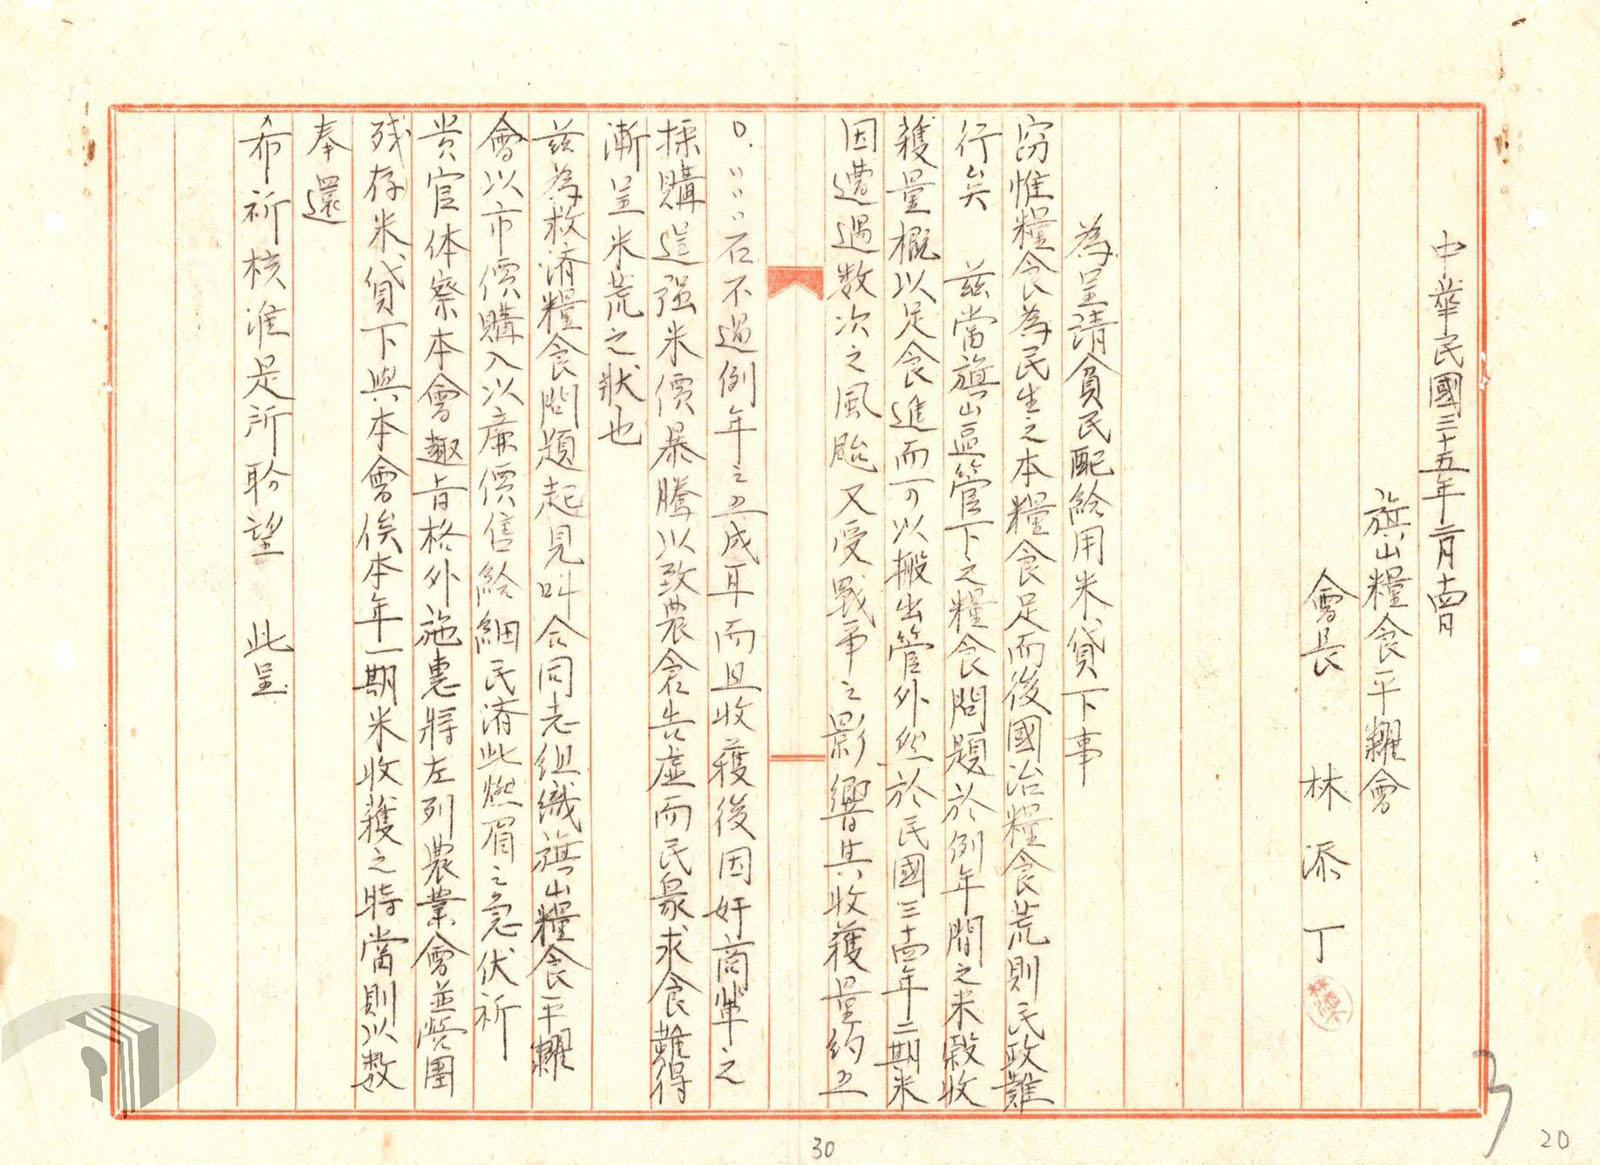 中華民國三十五年二月十四日
旗山糧食平糶會
會長 林添丁
為呈請貧民配給用米貸下事
窃惟糧食為民生之本糧食足而後國治糧食荒則民政難
行矣 茲當旗山區管下之糧食問題於例年間之米穀收
獲量概以足食進而可以搬出管外然於民國三十四年二期米
因遭遇数次之風颱又受戰爭之影響其收獲量約五
〇.〇〇〇石不過例年之五成耳而且收獲後因奸商輩之
採購造强米價暴騰以致農倉告虛而民衆求食難得
漸呈米荒之狀也
茲為救済糧食問題起見叫合同志組織旗山糧食平糶
會以市價購入以廉價售給細民済此燃眉之急伏祈
貴官体察本會趣旨格外施惠將左列農業會並營團
残存米貸下與本會俟本年一期米收獲之時當則以数
奉還
希祈核准是所盼望 此呈
30
20